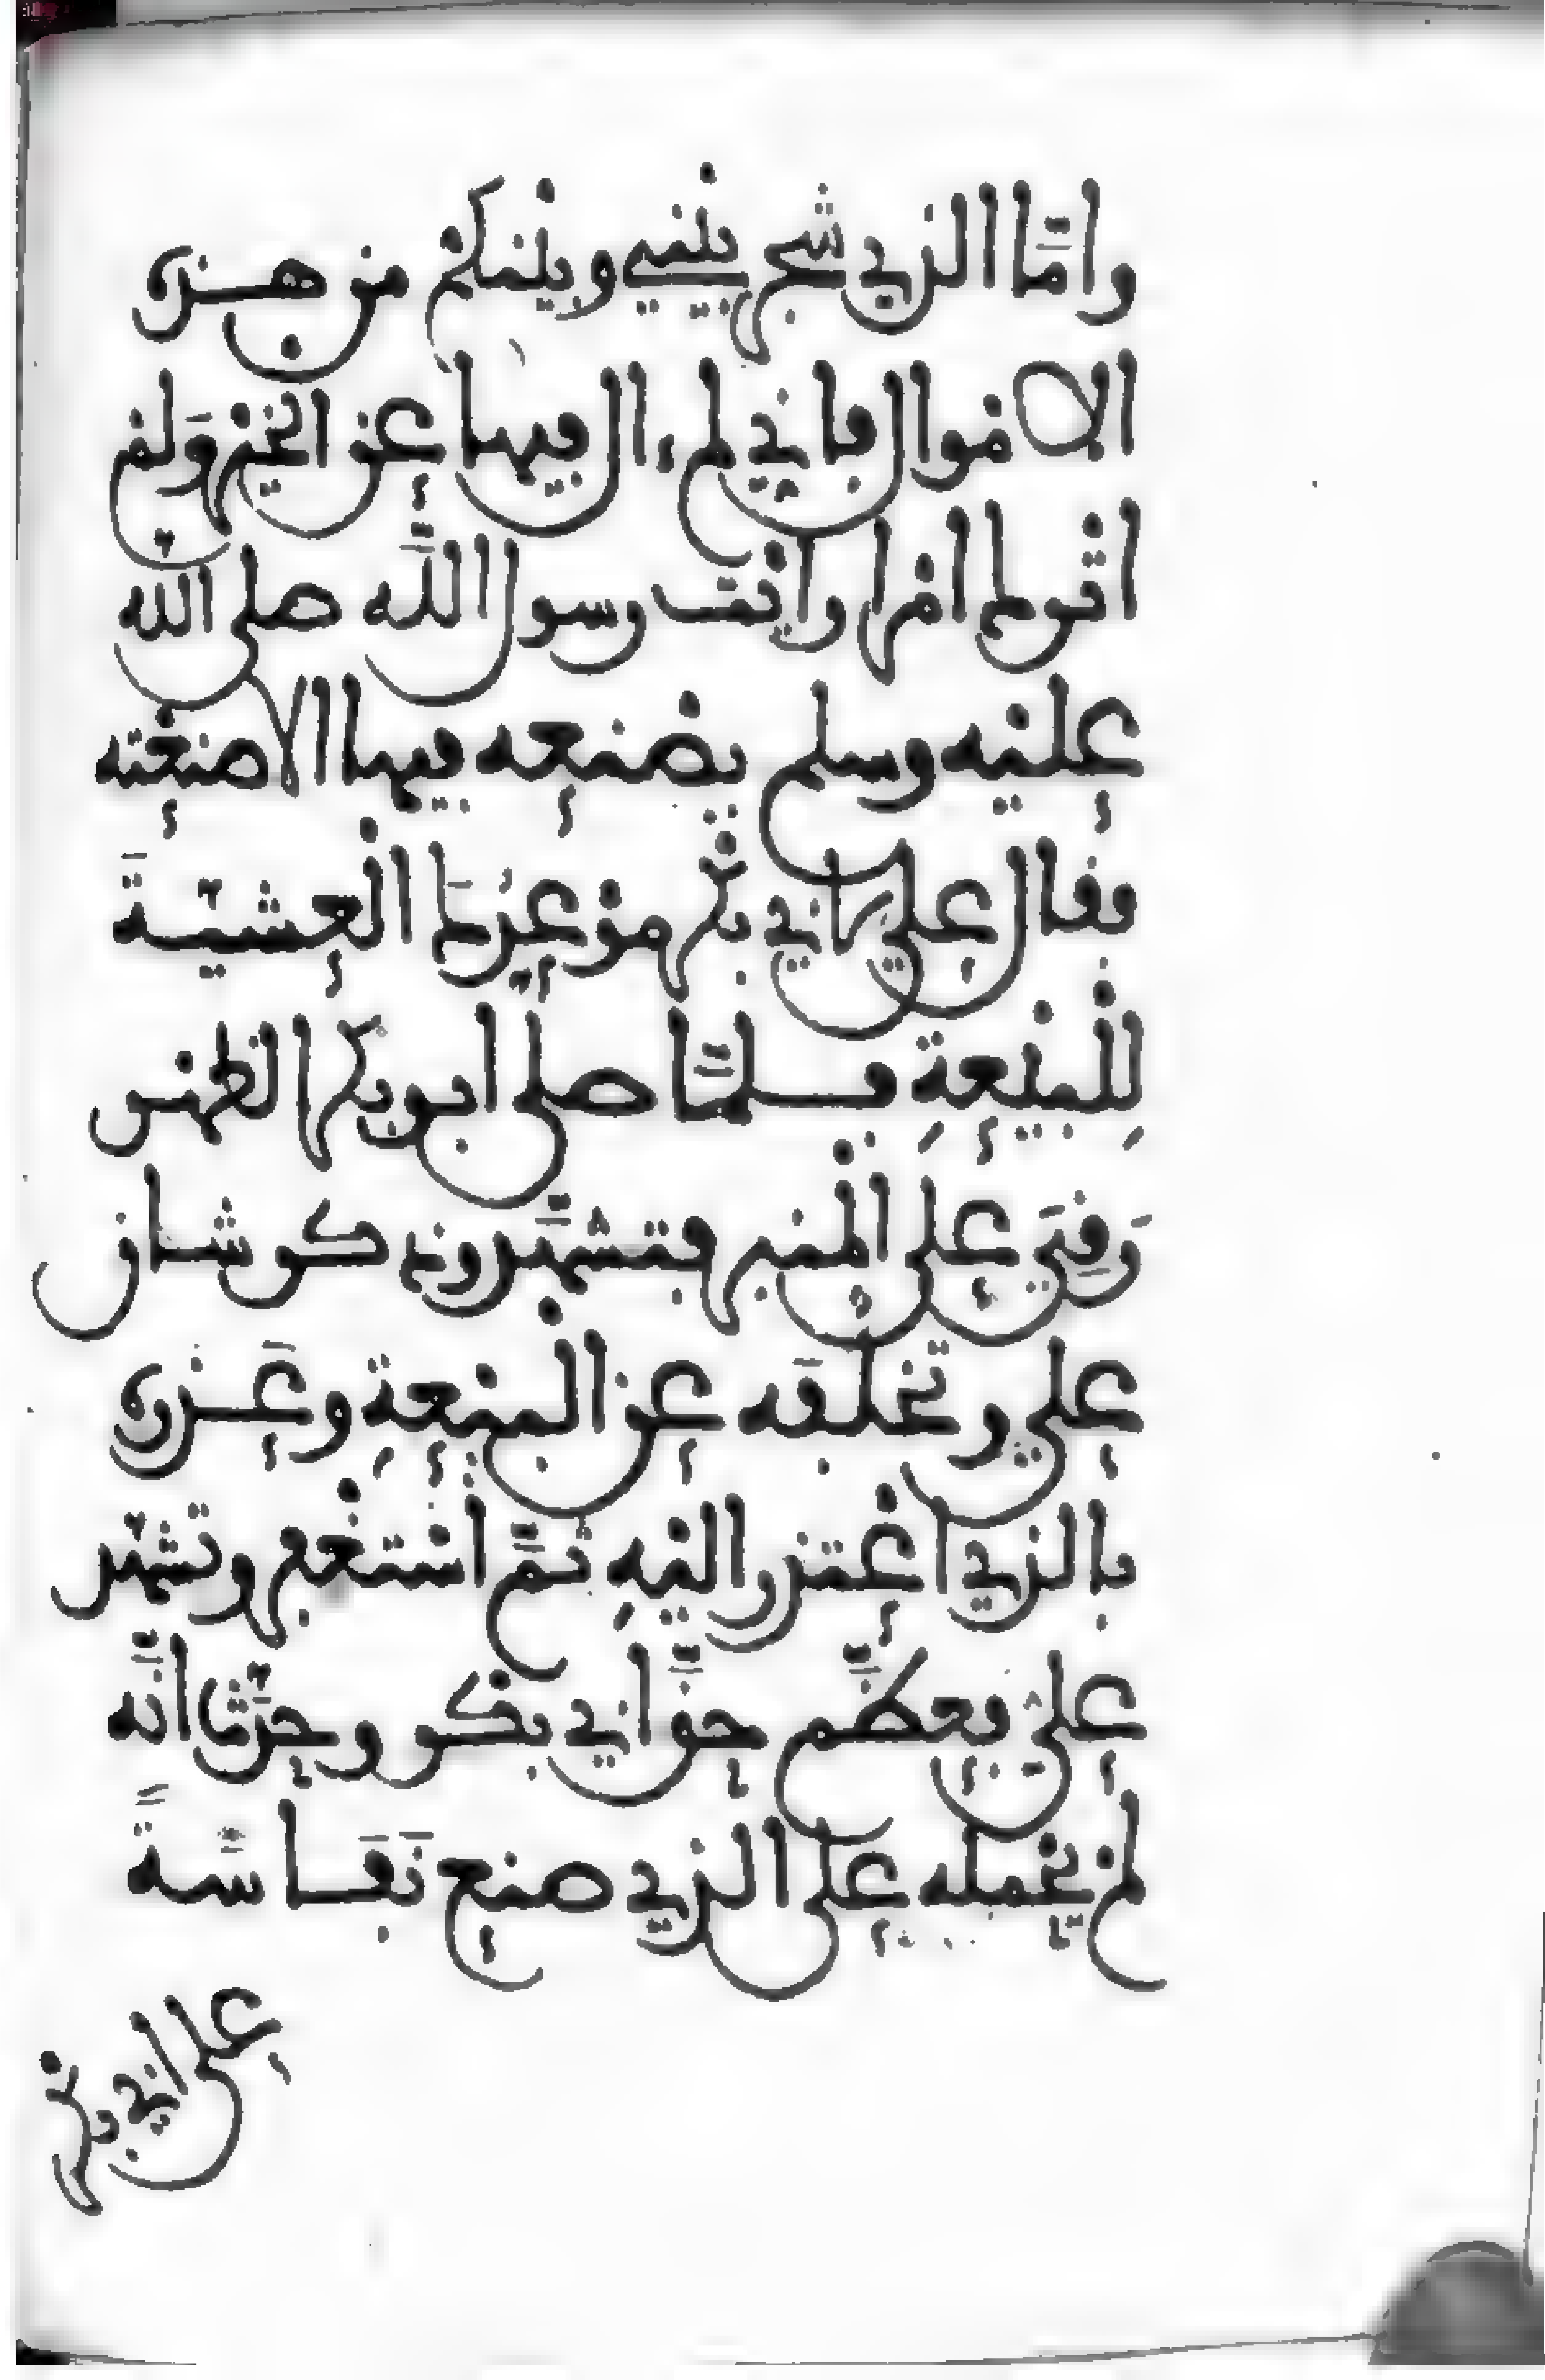 وامّا الذي شجر بيني وبينكم من هذه
الاموال فاني لم ءال فيها عن الخير ولم
اترك امرا رايت رسول الله صلى الله
عليه وسلم يصنعه فيها الا صنعته
فقال علي لابي بكر موعدك العشيّة
للبيعةِ فلمّا صلى ابو بكر الظهر
رَقِيَ على المنبر فتشهّد وذكر شان
علي وتخلّفه عن البيعةِ وعذره
بالذي اعتذر اليهِ ثمّ استغفر وتشهّد
عليّ فعظّم حقّ ابي بكر وحدّث انّه
لم يحمله على الذي صنع نَفَاسَةً
على ابي بكر